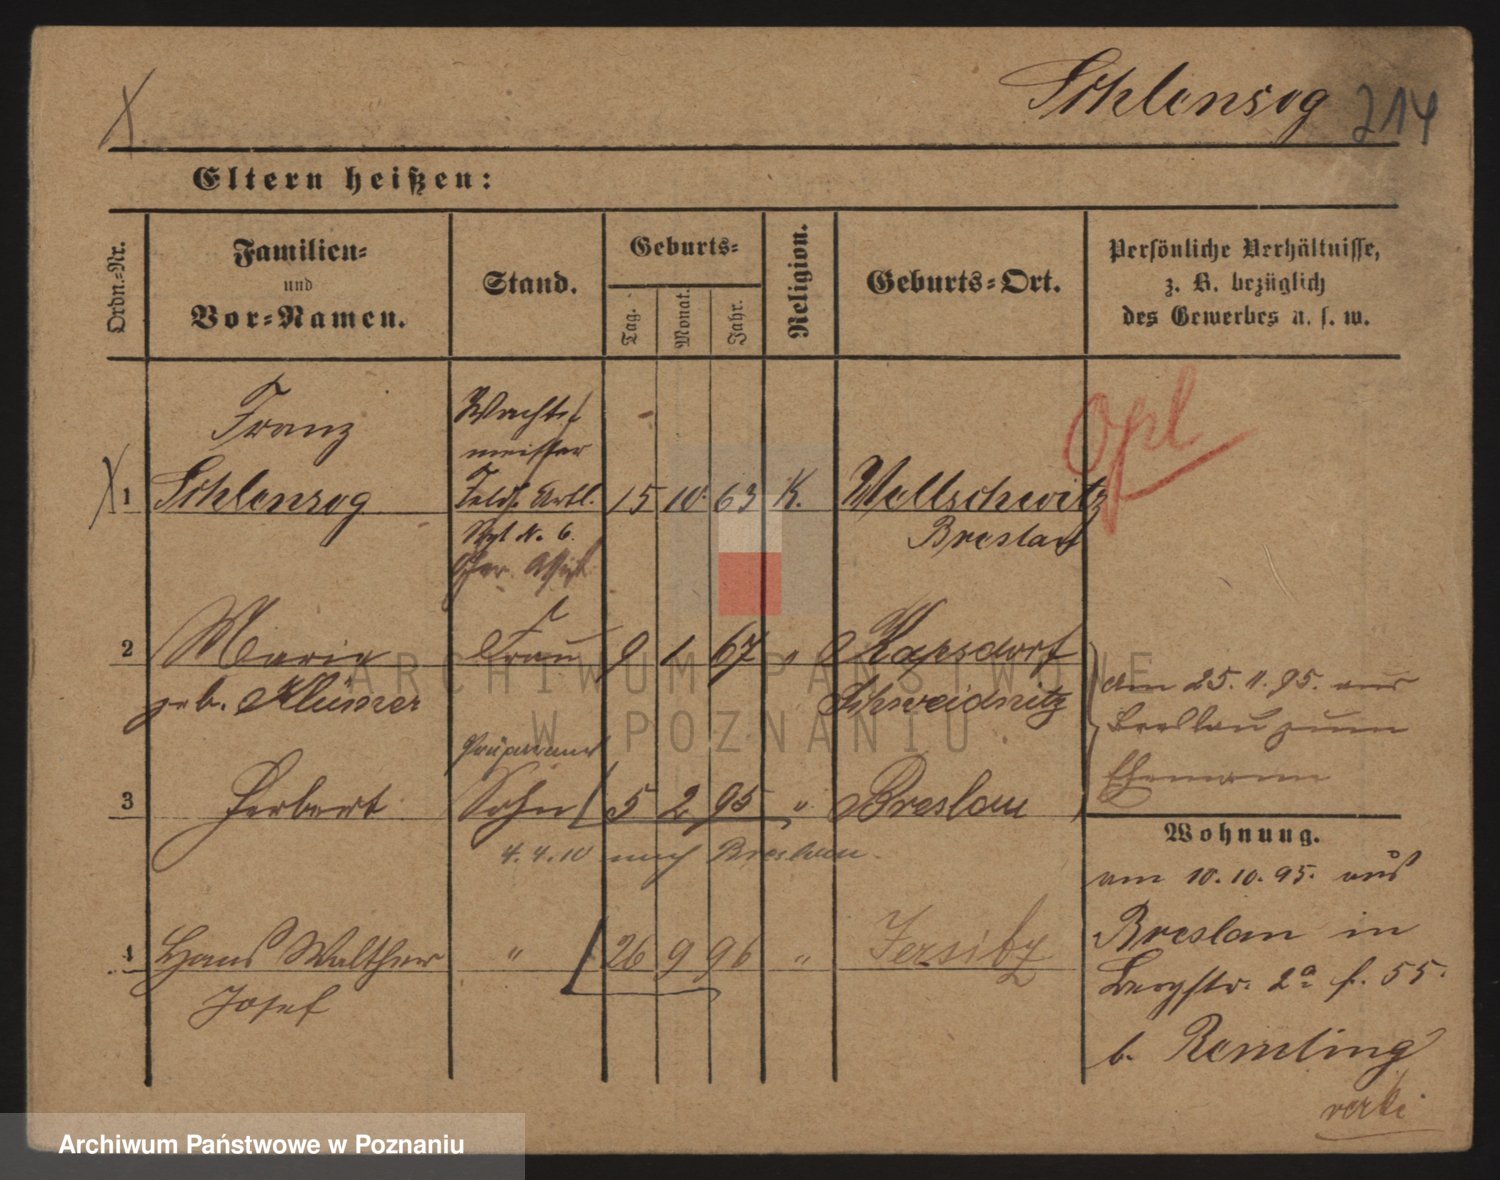 Schlensog 214
Eltern heißen:
Ordn.-Nr.
Familien-
und
Vor-Namen.
Stand.
Geburts-
Tag.
Monat.
Jahr.
Religion.
Geburts-Ort.
Persönliche Verhältnisse,
z. B. bezüglich
des Gewerbes u. s. w.
Franz
Wacht-
meister
1 Schlensog
Feld. Artl. 15 10. 63 K. Wellschwitz
No. 6. Breslau
2 Marie Frau 9 1 67 " Kapsdorf
geb. Klüsner Schweidnitz
am 25. 1. 95. aus
Breslau zum
Ehemann
Präparand
3 Herbert Sohn 5 2 95 " Breslau
4. 4. 10 nach Breslau.
4 Hans Walther " 26 9 96 " Jersitz
Josef
Wohnung.
am 10. 10. 95. aus
Breslau in
Bergstr. 2a 55.
b. Remling
ARCHIWUM PAŃSTWOWE
W POZNANIU
Archiwum Państwowe w Poznaniu